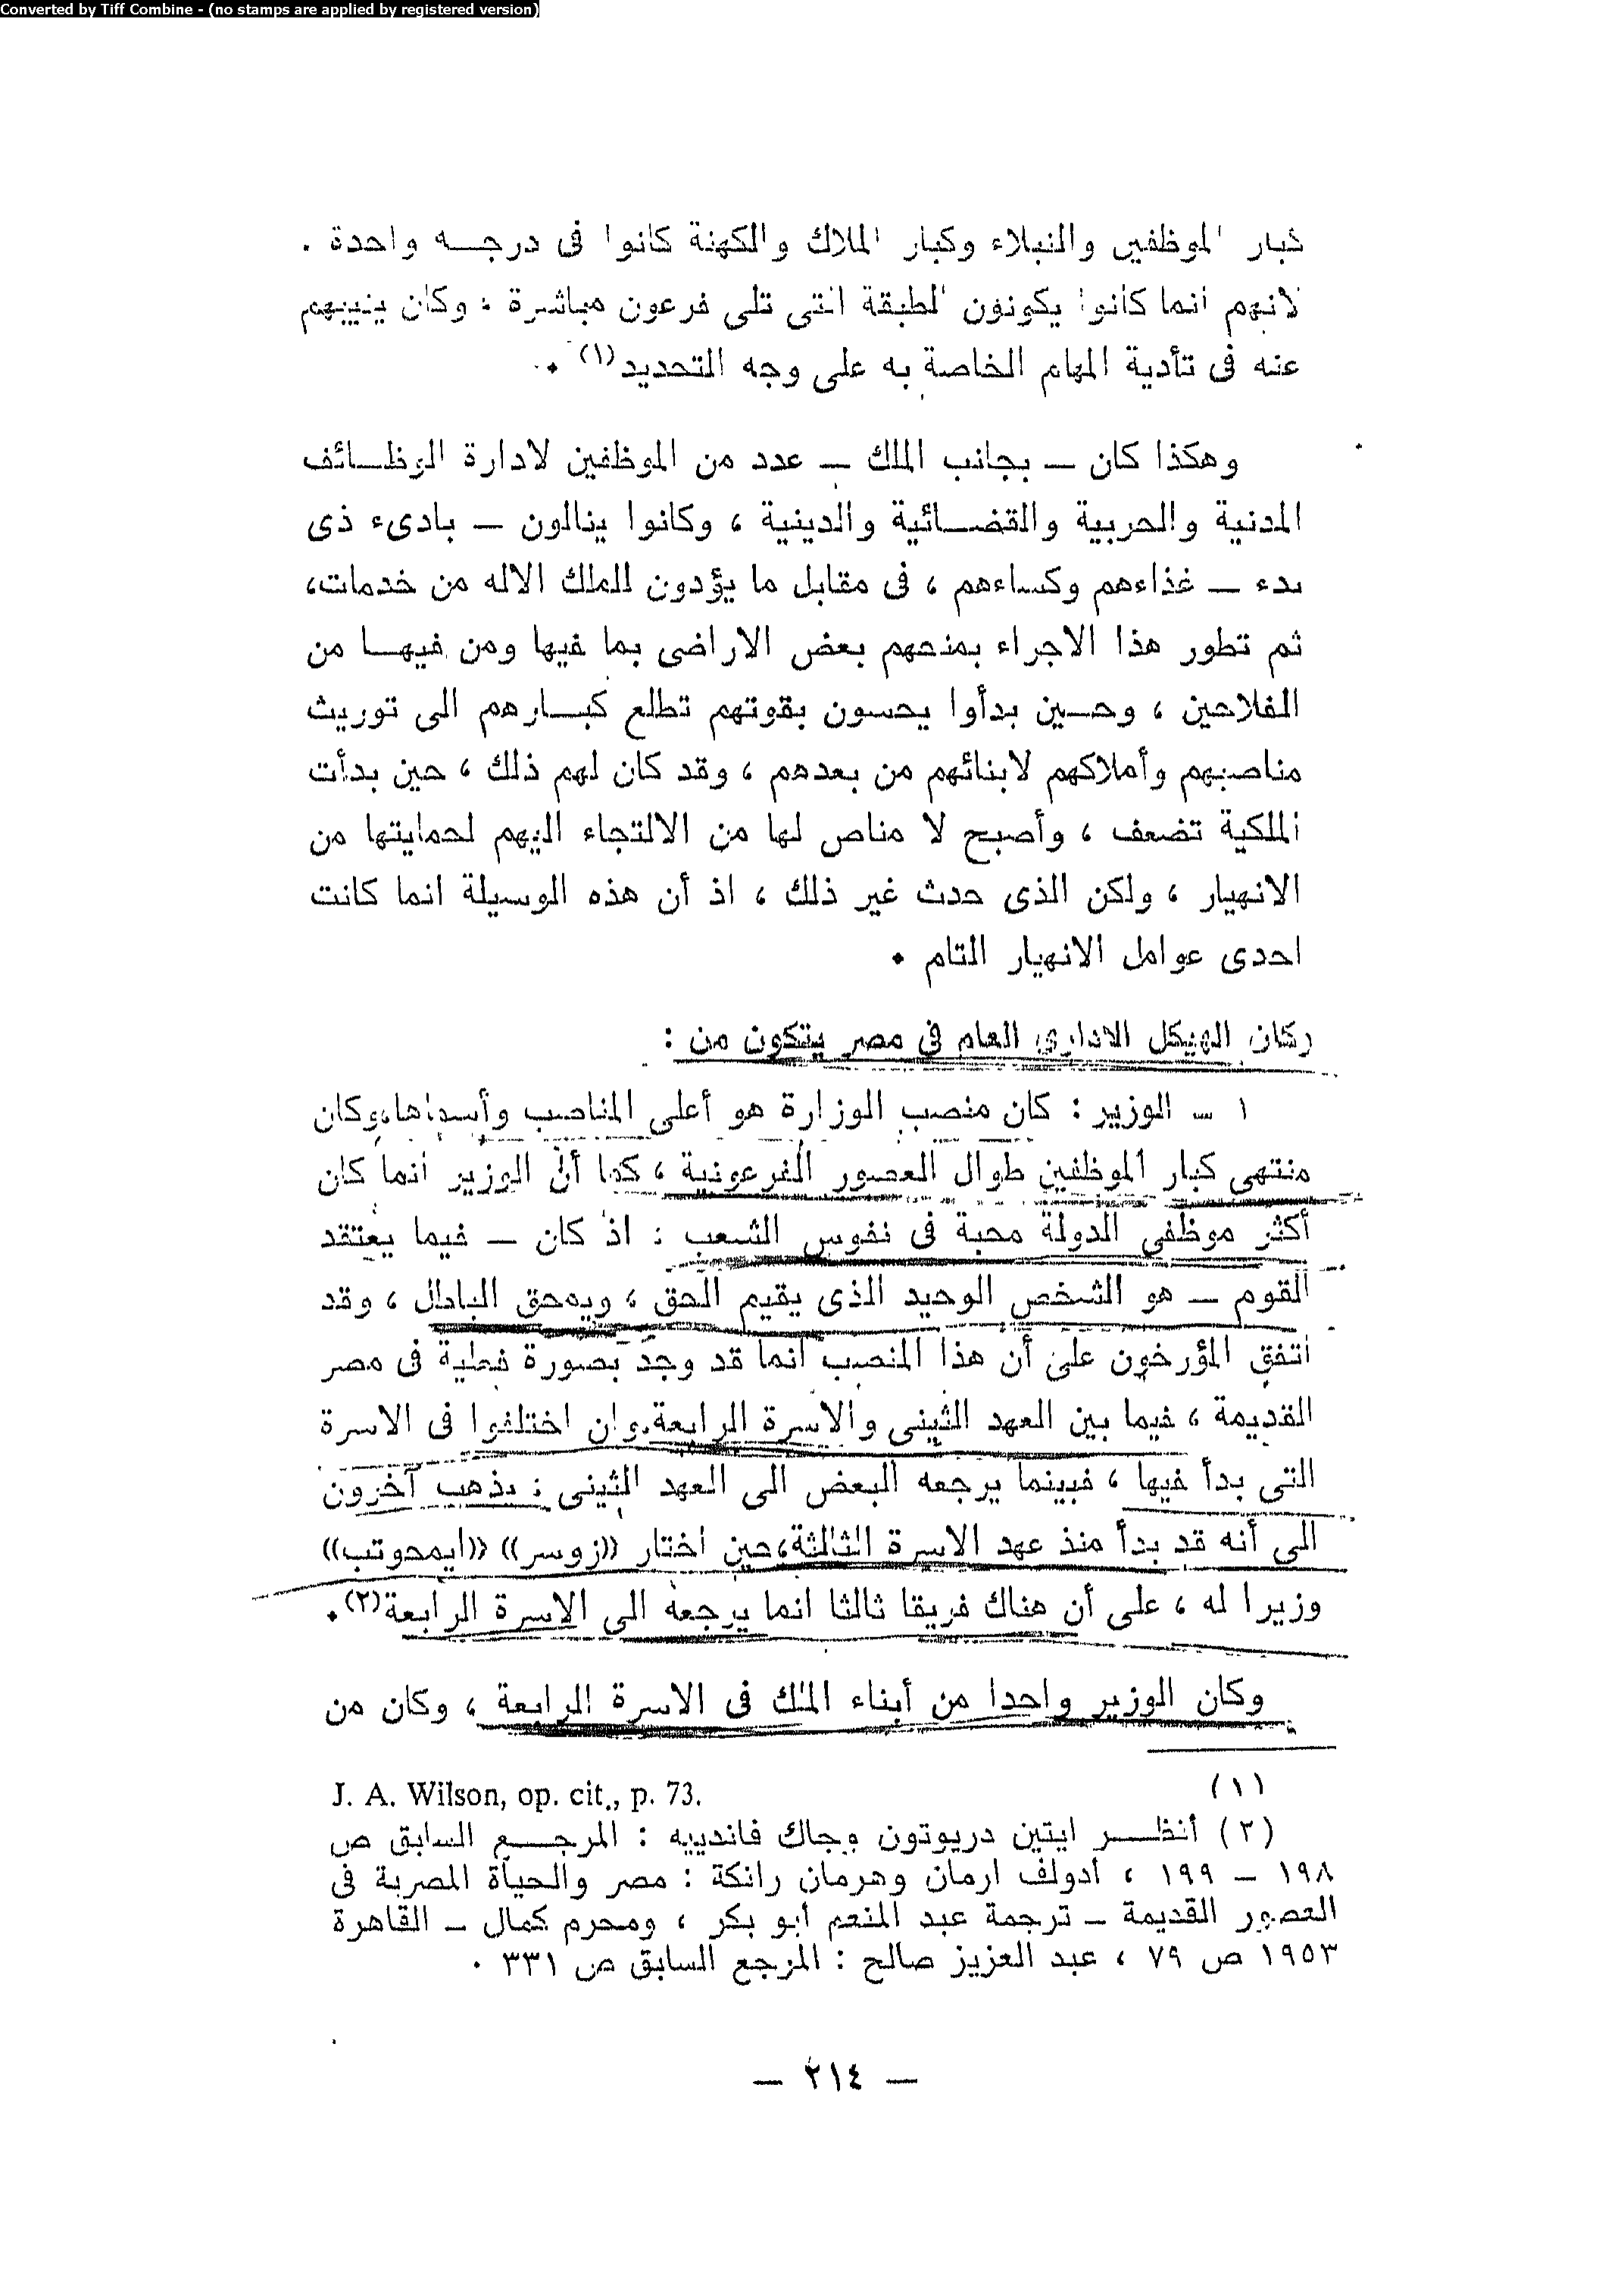 Converted by Tiff Combine - (no stamps are applied by registered version)
كبار الموظفين والنبلاء وكبار الملاك والكهنة كانوا فى درجـــه واحدة .
لانهم انما كانوا يكونون الطبقة التى تلى فرعون مباشرة ، وكان ينيبهم
عنه فى تأدية المهام الخاصة به على وجه التحديد(١) ٠
وهكذا كان — بجانب الملك — عدد من الموظفين لادارة الوظـــائف
المدنية والحربية والقضـــائية والدينية ، وكانوا ينالون — بادىء ذى
بدء — غذاءهم وكساءهم ، فى مقابل ما يؤدون للملك الاله من خدمات،
ثم تطور هذا الاجراء بمنحهم بعض الاراضى بما فيها ومن فيهـــا من
الفلاحين ، وحـــين بدأوا يحسون بقوتهم تطلع كبـــارهم الى توريث
مناصبهم وأملاكهم لابنائهم من بعدهم ، وقد كان لهم ذلك ، حين بدأت
الملكية تضعف ، وأصبح لا مناص لها من الالتجاء اليهم لحمايتها من
الانهيار ، ولكن الذى حدث غير ذلك ، اذ أن هذه الوسيلة انما كانت
احدى عوامل الانهيار التام ٠
ركان الهيكل الادارى العام فى مصر يتكون من :
١ — الوزير : كان منصب الوزارة هو أعلى المناصب وأسماها،وكان
منتهى كبار الموظفين طوال العصور الفرعونية ، كما أن الوزير انما كان
أكثر موظفى الدولة محبة فى نفوس الشعب : اذ كان — فيما يعتقد
القوم — هو الشخص الوحيد الذى يقيم الحق ، ويمحق الباطل ، وقد
اتفق المؤرخون على أن هذا المنصب انما قد وجد بصورة فعلية فى مصر
القديمة ، فيما بين العهد الثينى والاسرة الرابعة،وان اختلفوا فى الاسرة
التى بدأ فيها ، فبينما يرجعه البعض الى العهد الثينى : يذهب آخرون
الى أنه قد بدأ منذ عهد الاسرة الثالثة،حين اختار ((زوسر)) ((ايمحوتب))
وزيرا له ، على أن هناك فريقا ثالثا انما يرجعه الى الاسرة الرابعة(٢)٠
وكان الوزير واحدا من أبناء الملك فى الاسرة الرابعة ، وكان من
(١) J. A. Wilson, op. cit., p. 73.
(٢) أنظـــر ايتين دريوتون وجاك فاندييه : المرجـــع السابق ص
١٩٨ — ١٩٩ ، أدولف ارمان وهرمان رانكة : مصر والحياة المصرية فى
العصور القديمة — ترجمة عبد المنعم أبو بكر ، ومحرم كمال — القاهرة
١٩٥٣ ص ٧٩ ، عبد العزيز صالح : المرجع السابق ص ٣٣١ ٠
— ٢١٤ —